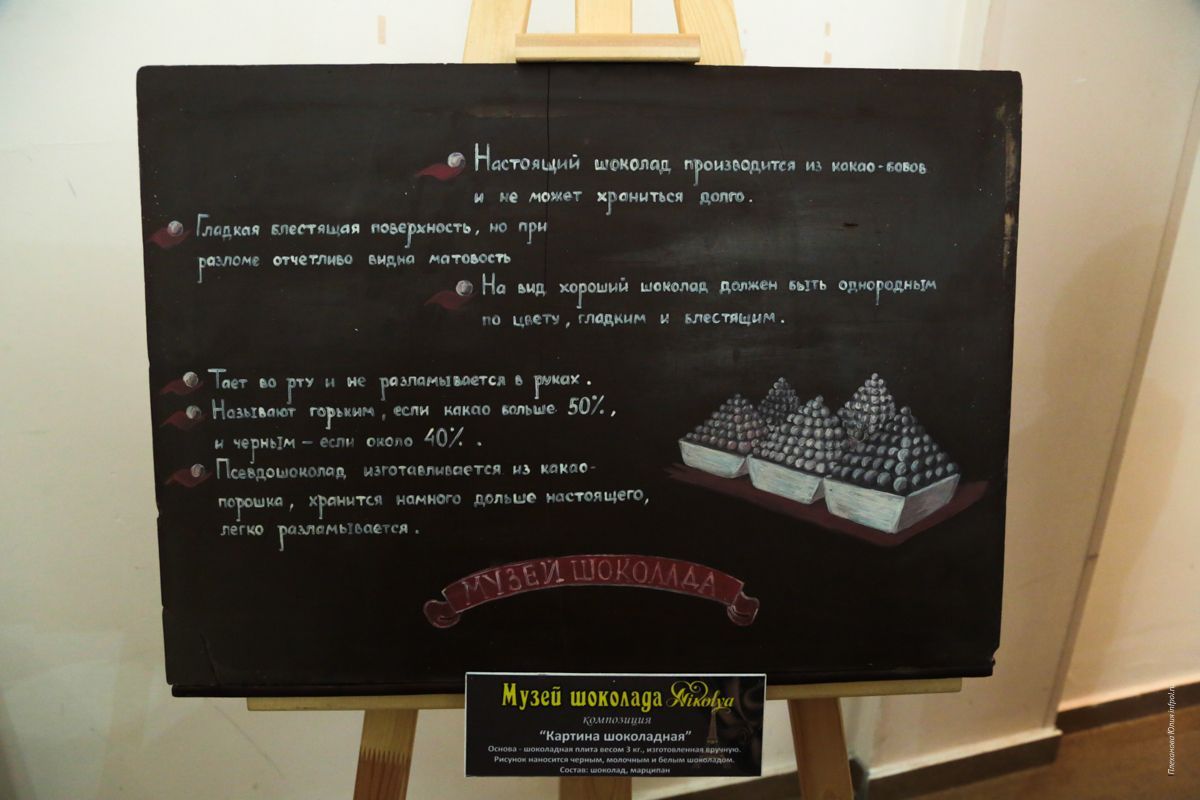 Настоящий шоколад производится из какао-бобов
и не может храниться долго.
Гладкая блестящая поверхность, но при
разломе отчетливо видна матовость
На вид хороший шоколад должен быть однородным
по цвету, гладким и блестящим.
Тает во рту и не разламывается в руках.
Называют горьким, если какао больше 50%,
и черным – если около 40%.
Псевдошоколад изготавливается из какао-
порошка, хранится намного дольше настоящего,
легко разламывается.
МУЗЕЙ ШОКОЛАДА
Музей шоколада Nikolya
композиция
"Картина шоколадная"
Основа - шоколадная плита весом 3 кг., изготовленная вручную.
Рисунок наносится черным, молочным и белым шоколадом.
Состав: шоколад, марципан
Плеханова Юлия infpol.ru